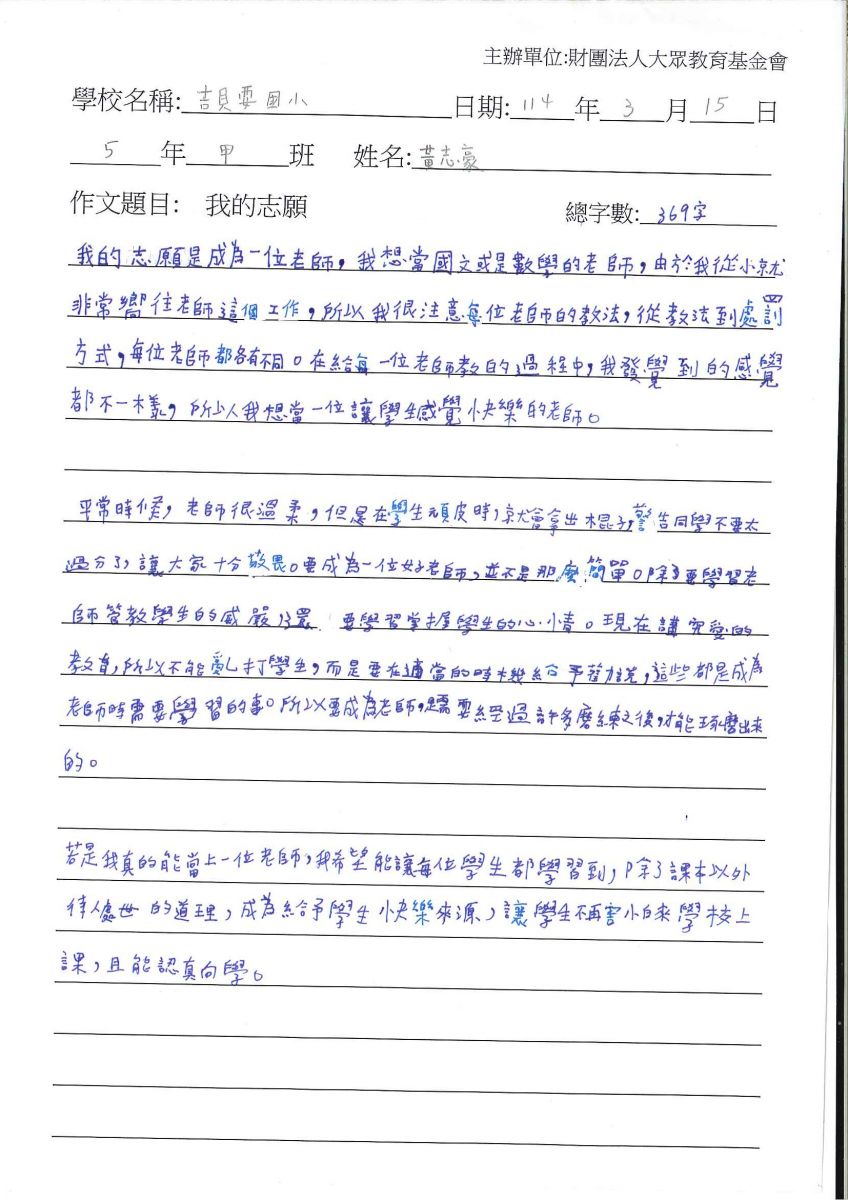 主辦單位:財團法人大眾教育基金會
學校名稱: 吉貝耍國小 日期: 114 年 3 月 15 日
5 年 甲 班 姓名: 黃志豪
作文題目: 我的志願 總字數: 369字
我的志願是成為一位老師，我想當國文或是數學的老師，由於我從小就
非常嚮往老師這個工作，所以我很注意每位老師的教法，從教法到處罰
方式，每位老師都各有不同。在給每一位老師教的過程中，我發覺到的感覺
都不一樣，所以我想當一位讓學生感覺快樂的老師。
平常時候，老師很溫柔，但是在學生頑皮時，就會拿出棍子，警告同學不要太
過分了，讓大家十分敬畏。要成為一位好老師，並不是那麼簡單。除了要學習老
師管教學生的威嚴，還 要學習掌握學生的心情。現在講究愛的
教育，所以不能亂打學生，而是要在適當的時機給予勸說，這些都是成為
老師時需要學習的事。所以要成為老師，是需要經過許多磨練之後，才能琢磨出來
的。
若是我真的能當上一位老師，我希望能讓每位學生都學習到，除了課本以外
律人處世的道理，成為給予學生快樂來源，讓學生不再害怕來學校上
課，且能認真向學。